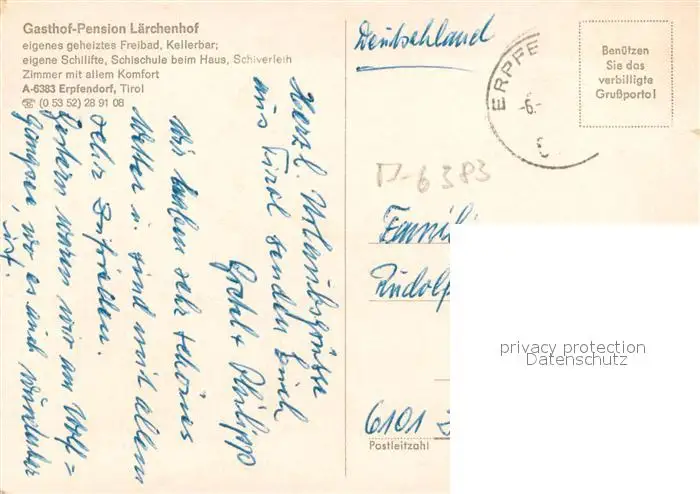 Gasthof-Pension Lärchenhof
eigenes geheiztes Freibad, Kellerbar;
eigene Schilifte, Schischule beim Haus, Schiverleih
Zimmer mit allem Komfort
A-6383 Erpfendorf, Tirol
☏ (0 53 52) 28 91 08
Herzl. Urlaubsgrüsse
aus Tirol senden Euch
Gretel + Philipp
Wir haben sehr schönes
Wetter u. sind mit allem
sehr zufrieden.
Gestern waren wir am Wolf=
gangsee, wo es auch wunderbar
ist.
Deutschland
ERPFE
-6.-
Benützen
Sie das
verbilligte
Grußporto!
6383
Famili
Rudolf
6101
Postleitzahl
privacy protection
Datenschutz